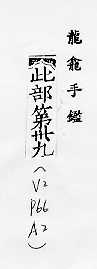 龍龕手鑑
此部第卅九
(V2
P66
A2
)